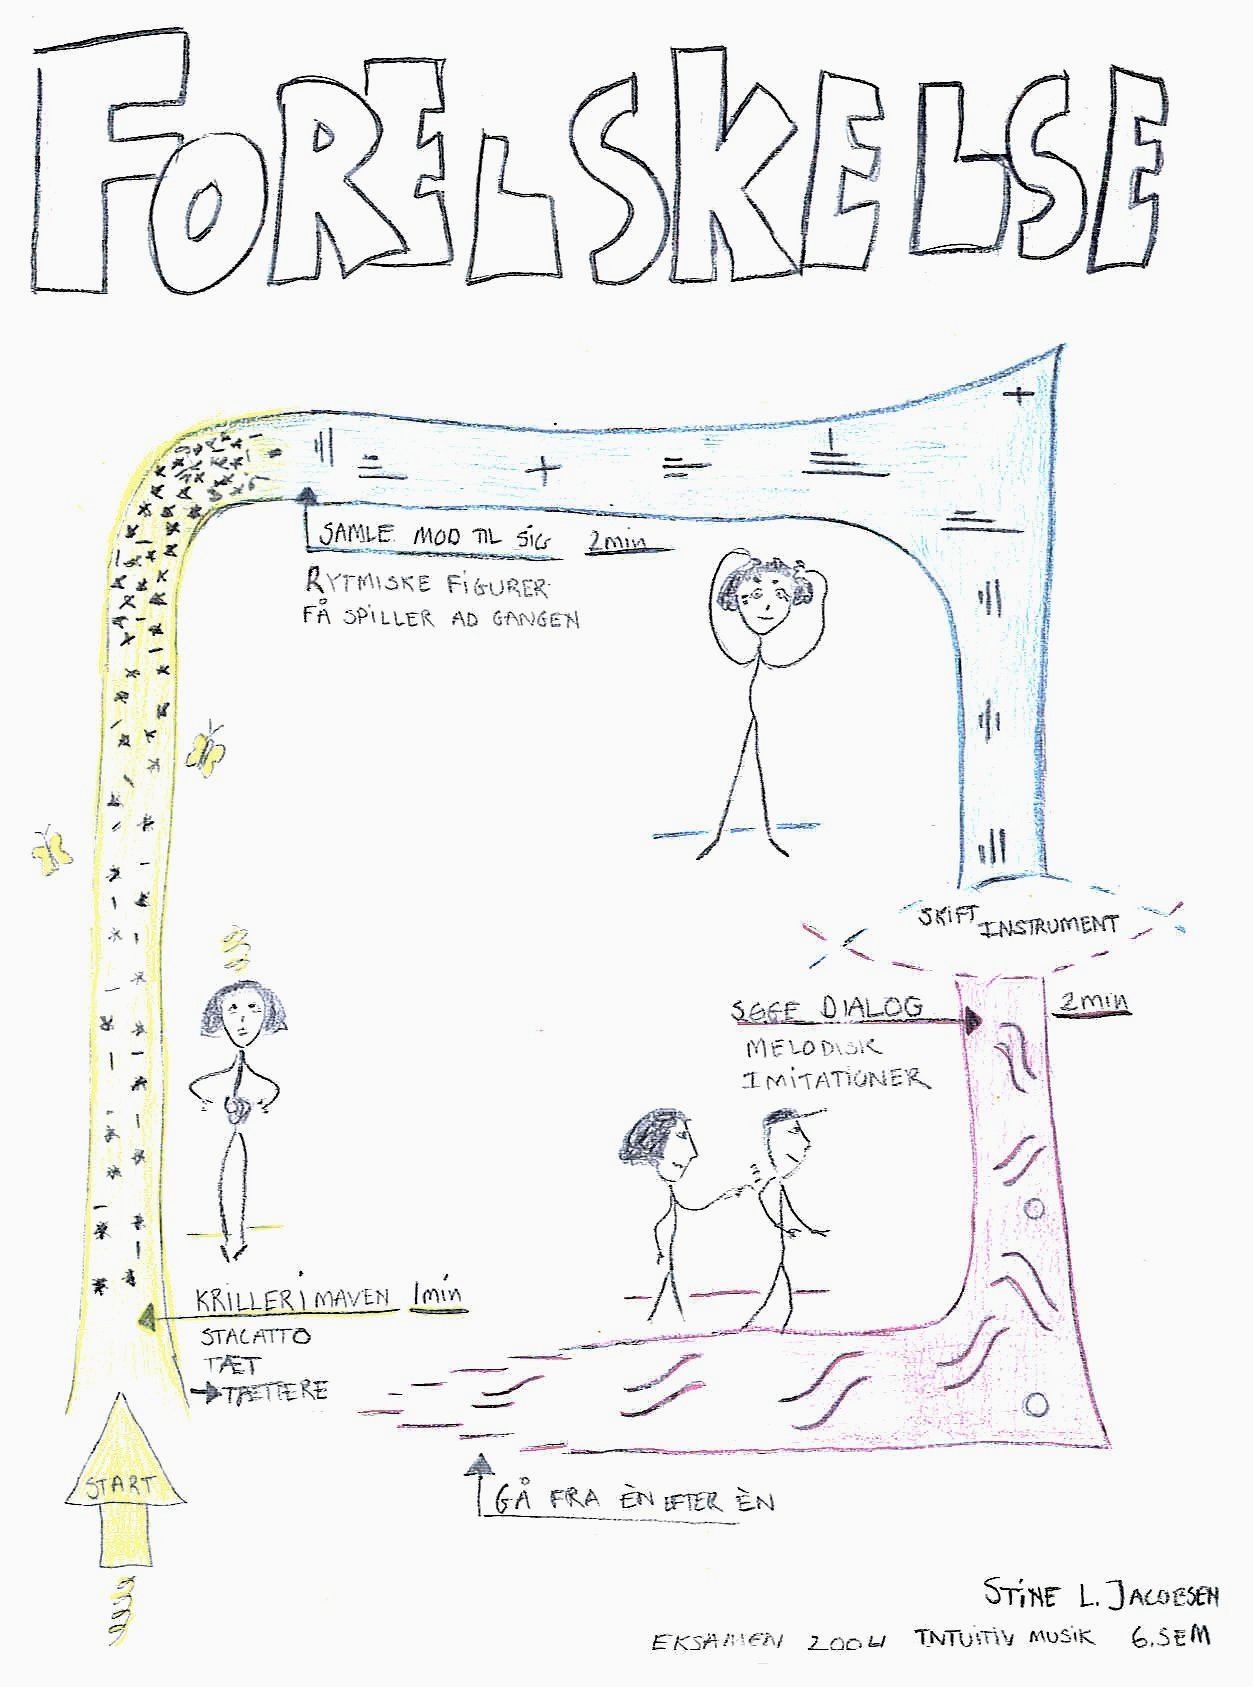 FORELSKELSE
SAMLE MOD TIL SIG 2min
RYTMISKE FIGURER
FÅ SPILLER AD GANGEN
SKIFT INSTRUMENT
SØGE DIALOG 2min
MELODISK
IMITATIONER
KRILLER I MAVEN 1min
STACATTO
TÆT
TÆTTERE
START
GÅ FRA ÈN EFTER ÈN
STINE L. JACOBSEN
EKSAMEN 2004 INTUITIV MUSIK 6.SEM